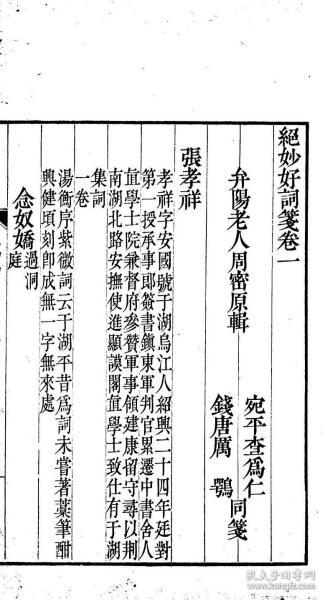 絕妙好詞箋卷一
弁陽老人周密原輯
宛平查為仁
錢唐厲鶚
同箋
張孝祥
孝祥字安國號于湖烏江人紹興二十四年廷對
第一授承事郎簽書鎮東軍判官累遷中書舍人
直學士院兼督府參贊軍事領建康留守尋以荆
南湖北路安撫使進顯謨閣直學士致仕有于湖
集詞一卷
湯衡序紫微詞云于湖平昔為詞未嘗著藁筆酣
興健頃刻即成無一字無來處
念奴嬌 過洞庭
孔夫子旧书网